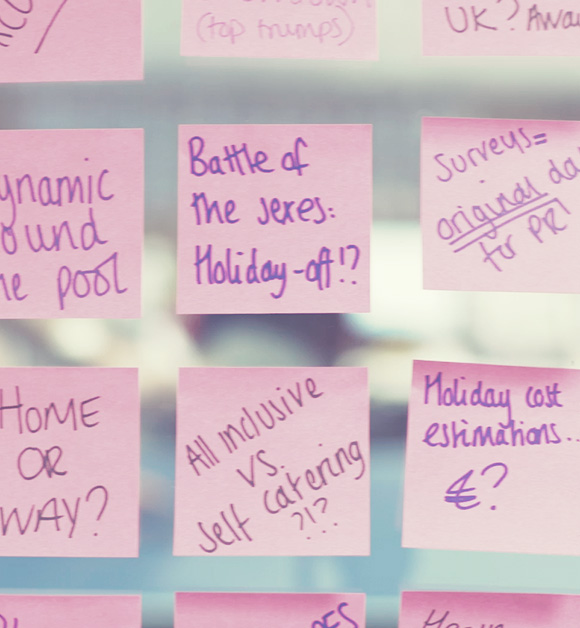 (top trumps)
UK? Awa
ynamic
ound
he pool
Battle of
the sexes:
Holiday-off!?
Surveys=
original da
for PR!
HOME
OR
WAY?
All inclusive
vs.
self catering
?!?
Holiday cost
estimations...
€?